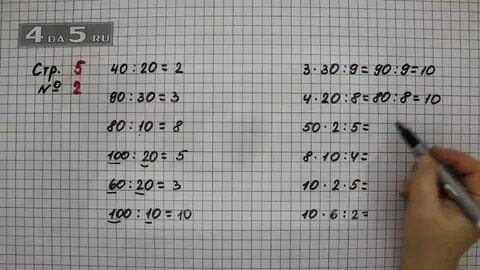 4 DA 5 RU
Стр. 5
№ 2
40 : 20 = 2
90 : 30 = 3
80 : 10 = 8
100 : 20 = 5
60 : 20 = 3
100 : 10 = 10
3 · 30 : 9 = 90 : 9 = 10
4 · 20 : 8 = 80 : 8 = 10
50 · 2 : 5 =
8 · 10 : 4 =
10 · 2 · 5 =
10 · 6 : 2 =